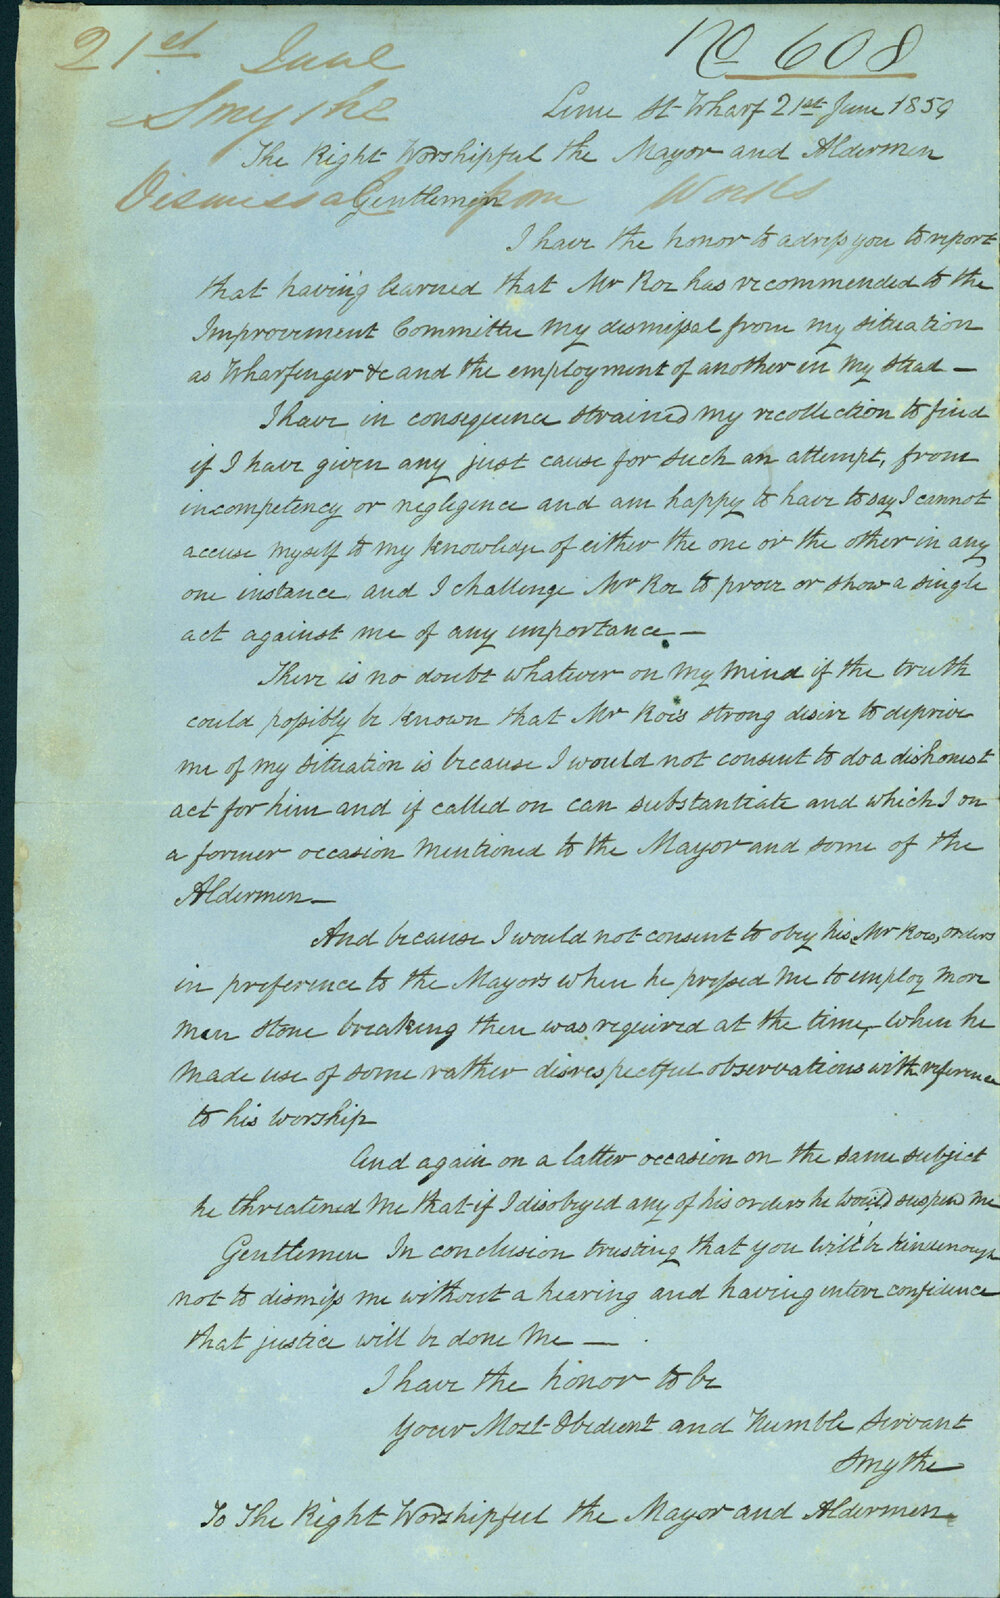 21st June
No 608
Smythe
Lime St Wharf 21st June 1859
The Right Worshipful the Mayor and Aldermen
Dismissal from Works
Gentlemen
I have the honor to adress you to report
that having learned that Mr Roe has recommended to the
Improvement Committee my dismissal from my situation
as Wharfinger &c and the employment of another in my stead —
I have in consequence strained my recollection to find
if I have given any just cause for such an attempt, from
incompetency or negligence and am happy to have to say I cannot
accuse myself to my knowledge of either the one or the other in any
one instance and I challenge Mr Roe to prove or show a single
act against me of any importance —
There is no doubt whatever on my mind if the truth
could possibly be known that Mr Roe's strong desire to deprive
me of my situation is because I would not consent to do a dishonest
act for him and if called on can substantiate and which I on
a former occasion mentioned to the Mayor and some of the
Aldermen —
And because I would not consent to obey his, Mr Roes, orders
in preference to the Mayors when he pressed me to employ more
men stone breaking then was required at the time, when he
made use of some rather disrespectful observations with reference
to his worship
And again on a latter occasion on the same subject
he threatened me that if I disobeyed any of his orders he would suspend me
Gentlemen In conclusion trusting that you will be kind enough
not to dismiss me without a hearing and having entire confidence
that justice will be done me —
I have the honor to be
your Most Obedient and Humble Servant
Smythe
To The Right Worshipful the Mayor and Aldermen